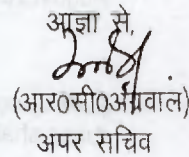 आज्ञा से,
(आर0सी0अग्रवाल)
अपर सचिव